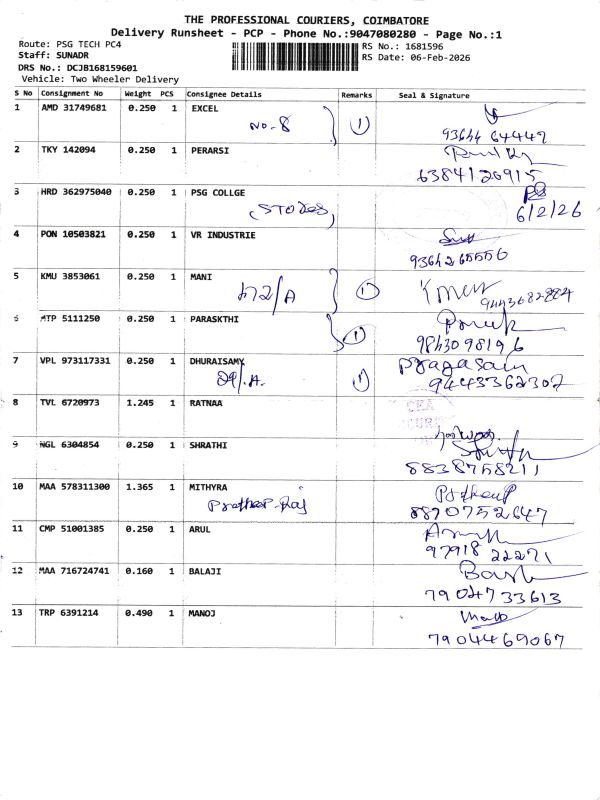 THE PROFESSIONAL COURIERS, COIMBATORE
Delivery Runsheet - PCP - Phone No.:9047080280 - Page No.:1
Route: PSG TECH PC4
RS No.: 1681596
Staff: SUNADR
RS Date: 06-Feb-2026
DRS No.: DCJB168159601
Vehicle: Two Wheeler Delivery
S No Consignment No Weight PCS Consignee Details Remarks Seal & Signature
1 AMD 31749681 0.250 1 EXCEL
No.8 1
93644 64449
2 TKY 142094 0.250 1 PERARSI
6384126915
3 HRD 362975040 0.250 1 PSG COLLGE
(STORES)
6/2/26
4 PON 10503821 0.250 1 VR INDUSTRIE
9364265556
5 KMU 3853061 0.250 1 MANI
1
9443682884
6 MTP 5111250 0.250 1 PARASKTHI
1
9843098196
7 VPL 973117331 0.250 1 DHURAISAMY
1
Pragasam
9443362307
8 TVL 6720973 1.245 1 RATNAA
9 NGL 6304854 0.250 1 SHRATHI
8838758211
10 MAA 578311300 1.365 1 MITHYRA
8870752647
11 CMP 51001385 0.250 1 ARUL
97918 22271
12 MAA 716724741 0.160 1 BALAJI
7904733613
13 TRP 6391214 0.490 1 MANOJ
7904469067